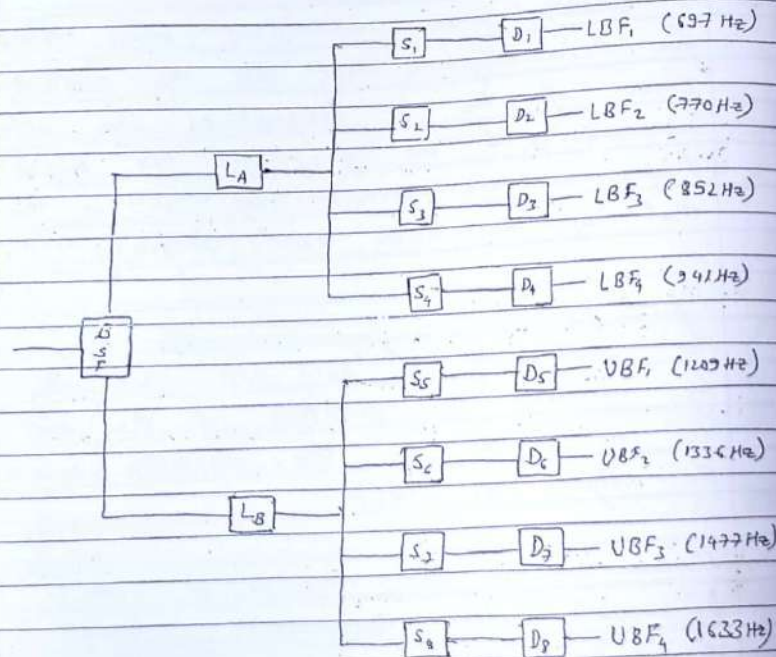 S1 D1 LBF1 (697 Hz)
S2 D2 LBF2 (770Hz)
LA
S3 D3 LBF3 (852Hz)
S4 D4 LBF4 (941Hz)
S5 D5 UBF1 (1209Hz)
S6 D6 UBF2 (1336Hz)
LB
S7 D7 UBF3 (1477Hz)
S8 D8 UBF4 (1633Hz)